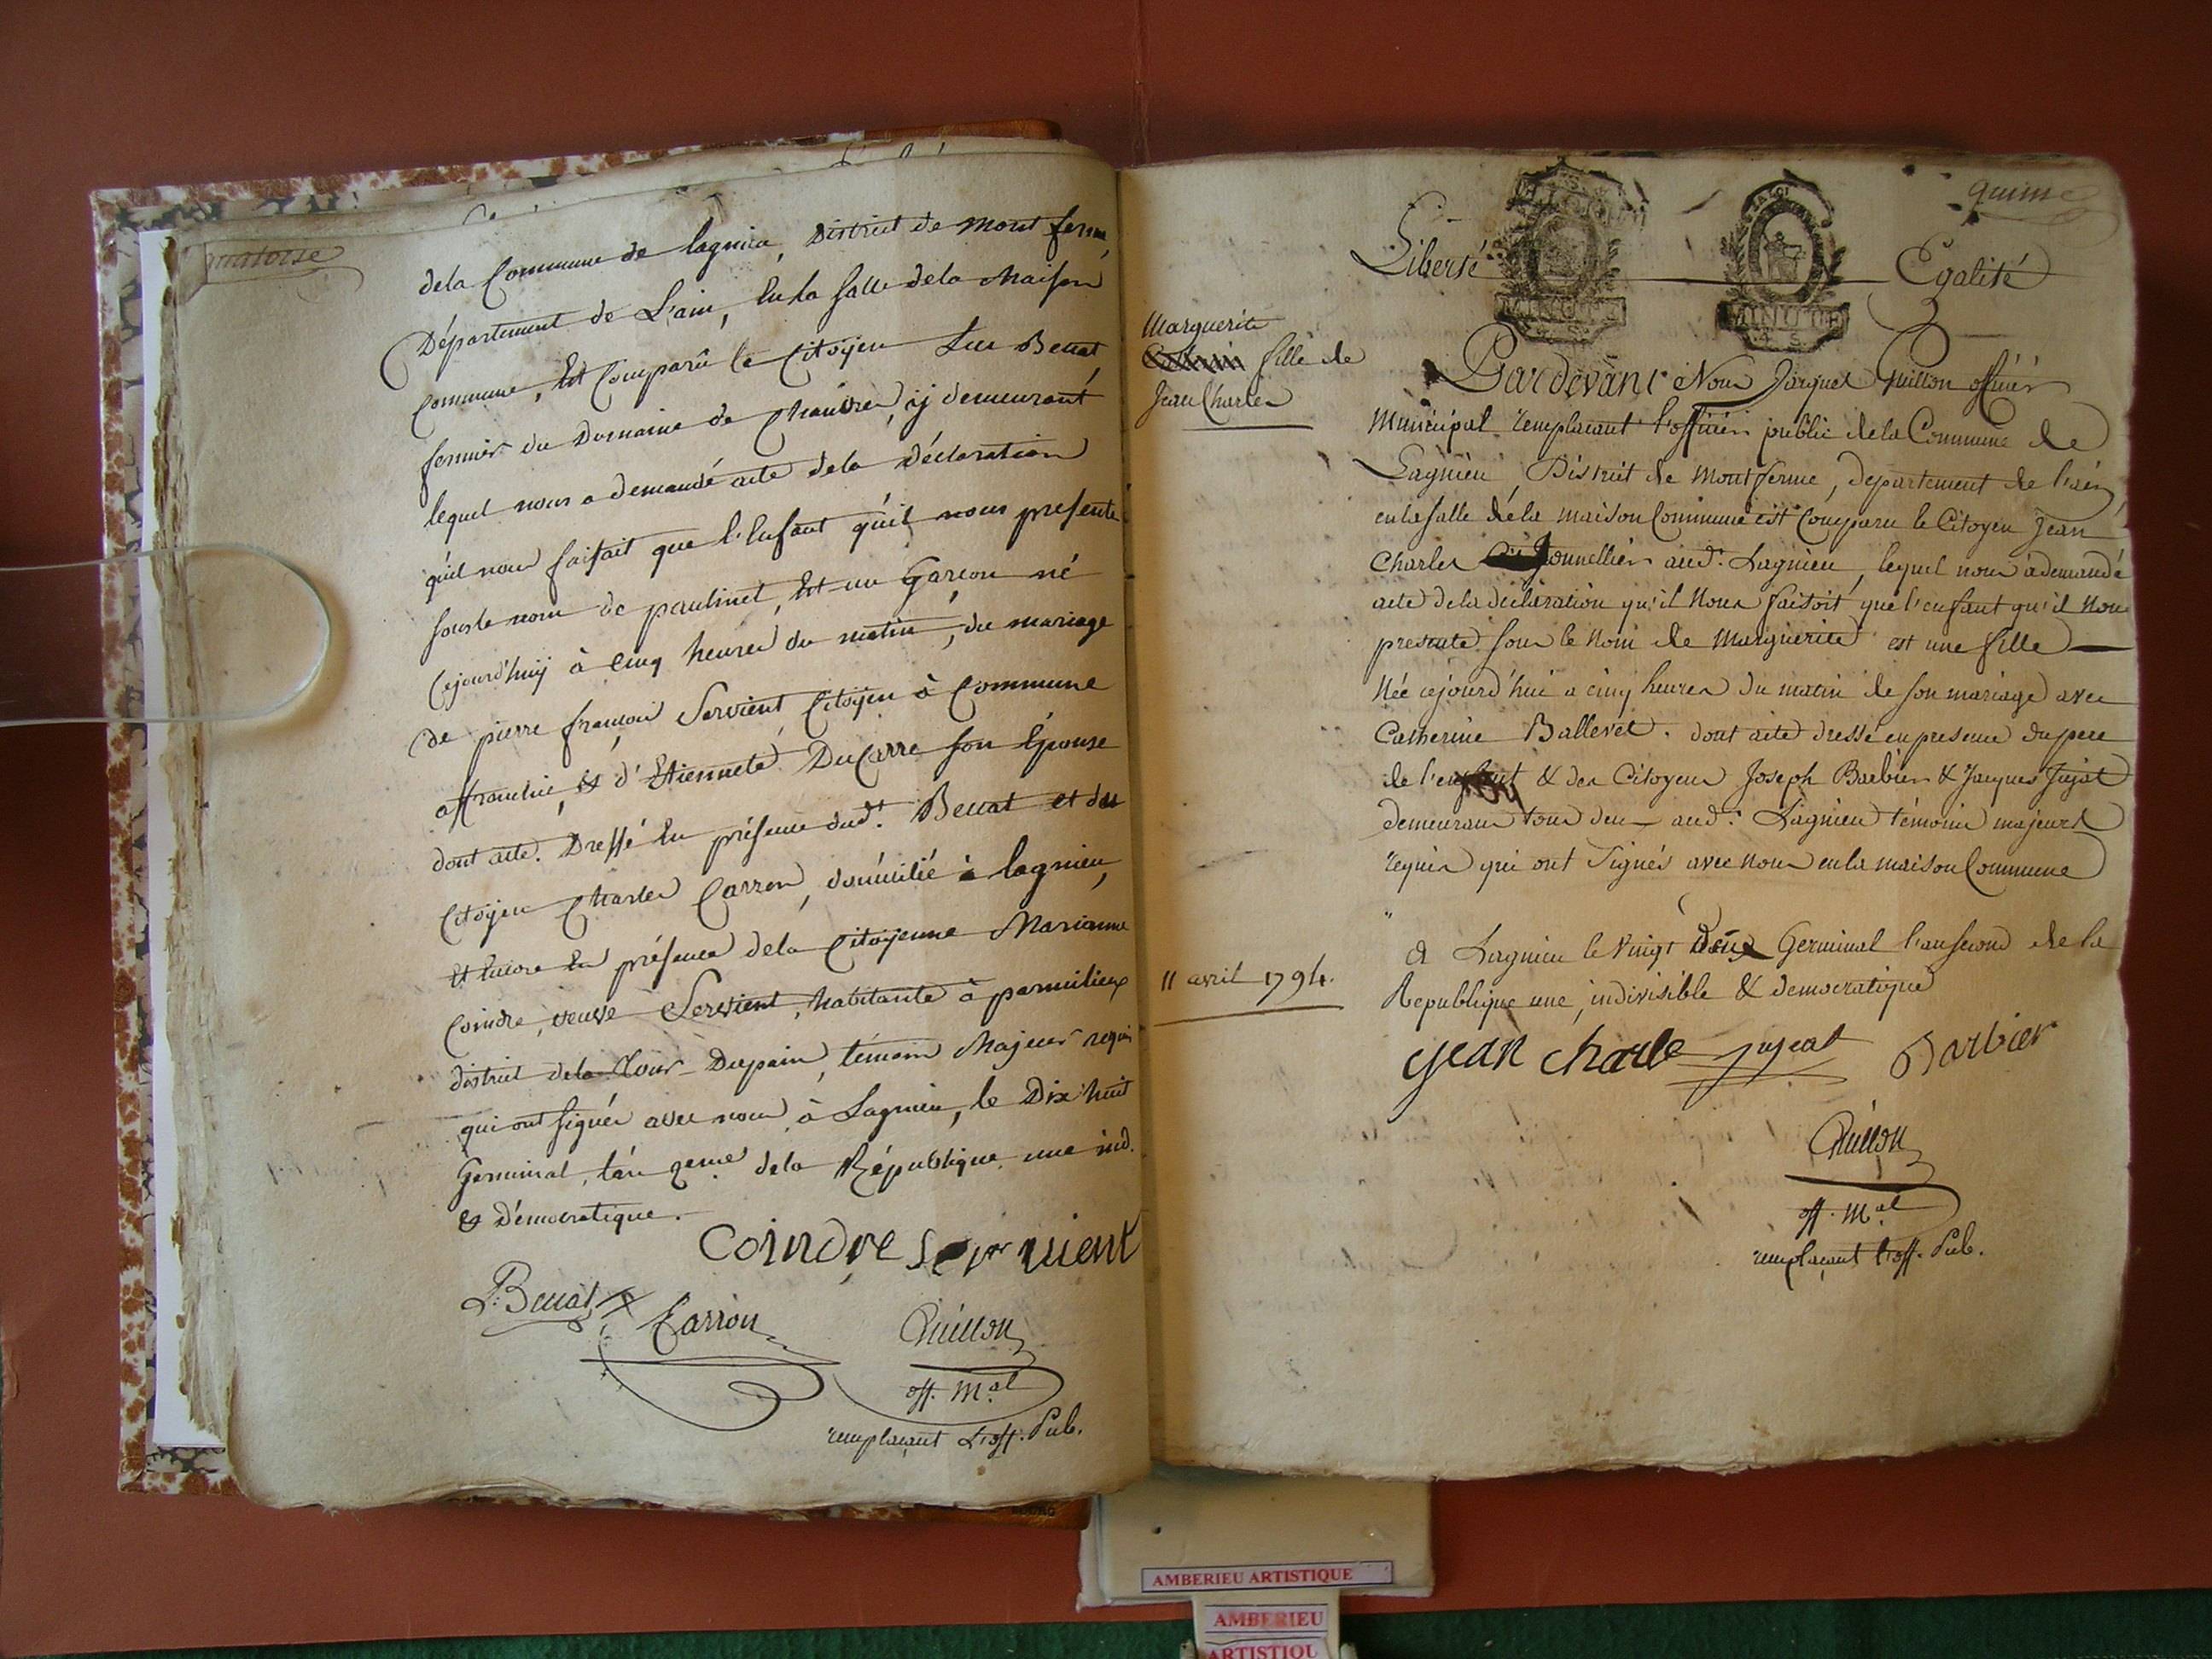 quatorze
dela Commune de lagnieu, District de Mont ferme,
Département de L'ain, En la Salle dela Maison
Commune, Est Comparû le Citoÿen Luc Benat
fermier du Domaine de Chauvre, ÿ demeurant
lequel nous a demandé acte dela déclaration
qu'il nous faisait que l'Enfant qu'il nous presente
sous le nom de paulinet, Est un Garçon né
Cejourd'huÿ à Cinq heures du matin, du mariage
de pierre françois Servient Citoÿen à Commune
affranchie, & d'Etiennete DuCarre son Épouse
dont acte. Dressé En présence dud.t Benat et du
Citoÿen Charles Carron, domicilié à lagnieu,
Et Encore En présence dela Citoÿenne Marianne
Coindre, veuve Servient, habitante à parmilieux
district dela Tour-Dupain, témoin Majeur requis
qui ont signés avec nous à Lagnieu, le Dix huit
Germinal, l'an 2eme dela République une ind.
& Démocratique.
Coindre servient
L. Benat Carron Quillon
off. M.al
remplaçant L'off. Pub.
quinze
Liberté Egalité
MINUTE
MINUTE
4 S.
Marguerite
fille de
Jean Charles
Pardevant Nous Jacques Quillon officier
Municipal remplacant l'officier public dela Commune de
Lagnieu, District de Montferme, departement de l'ain
en la salle dela maison Commune est Comparu le Citoyen Jean
Charles Tonnellier aud. Lagnieu, lequel nous a demandé
acte dela declaration qu'il Nous faisoit que l'enfant qu'il Nous
presente sous le Nom de Marguerite est une fille
Née cejourd'hui a cinq heures du matin de son mariage avec
Catherine Ballevet. dont acte dressé en presence du pere
de l'enfant & des Citoyens Joseph Barbier & Jacques Jujat
demeurans tous deux aud. Lagnieu témoins majeurs
requis qui ont signés avec nous en la maison Commune
a Lagnieu le Vingt Deux Germinal l'an second de la
11 avril 1794.
Republique une, indivisible & democratique
jean charle jujat Barbier
Quillon
off. M.al
remplaçant l'off. Pub.
AMBERIEU ARTISTIQUE
AMBERIEU
ARTISTIQU